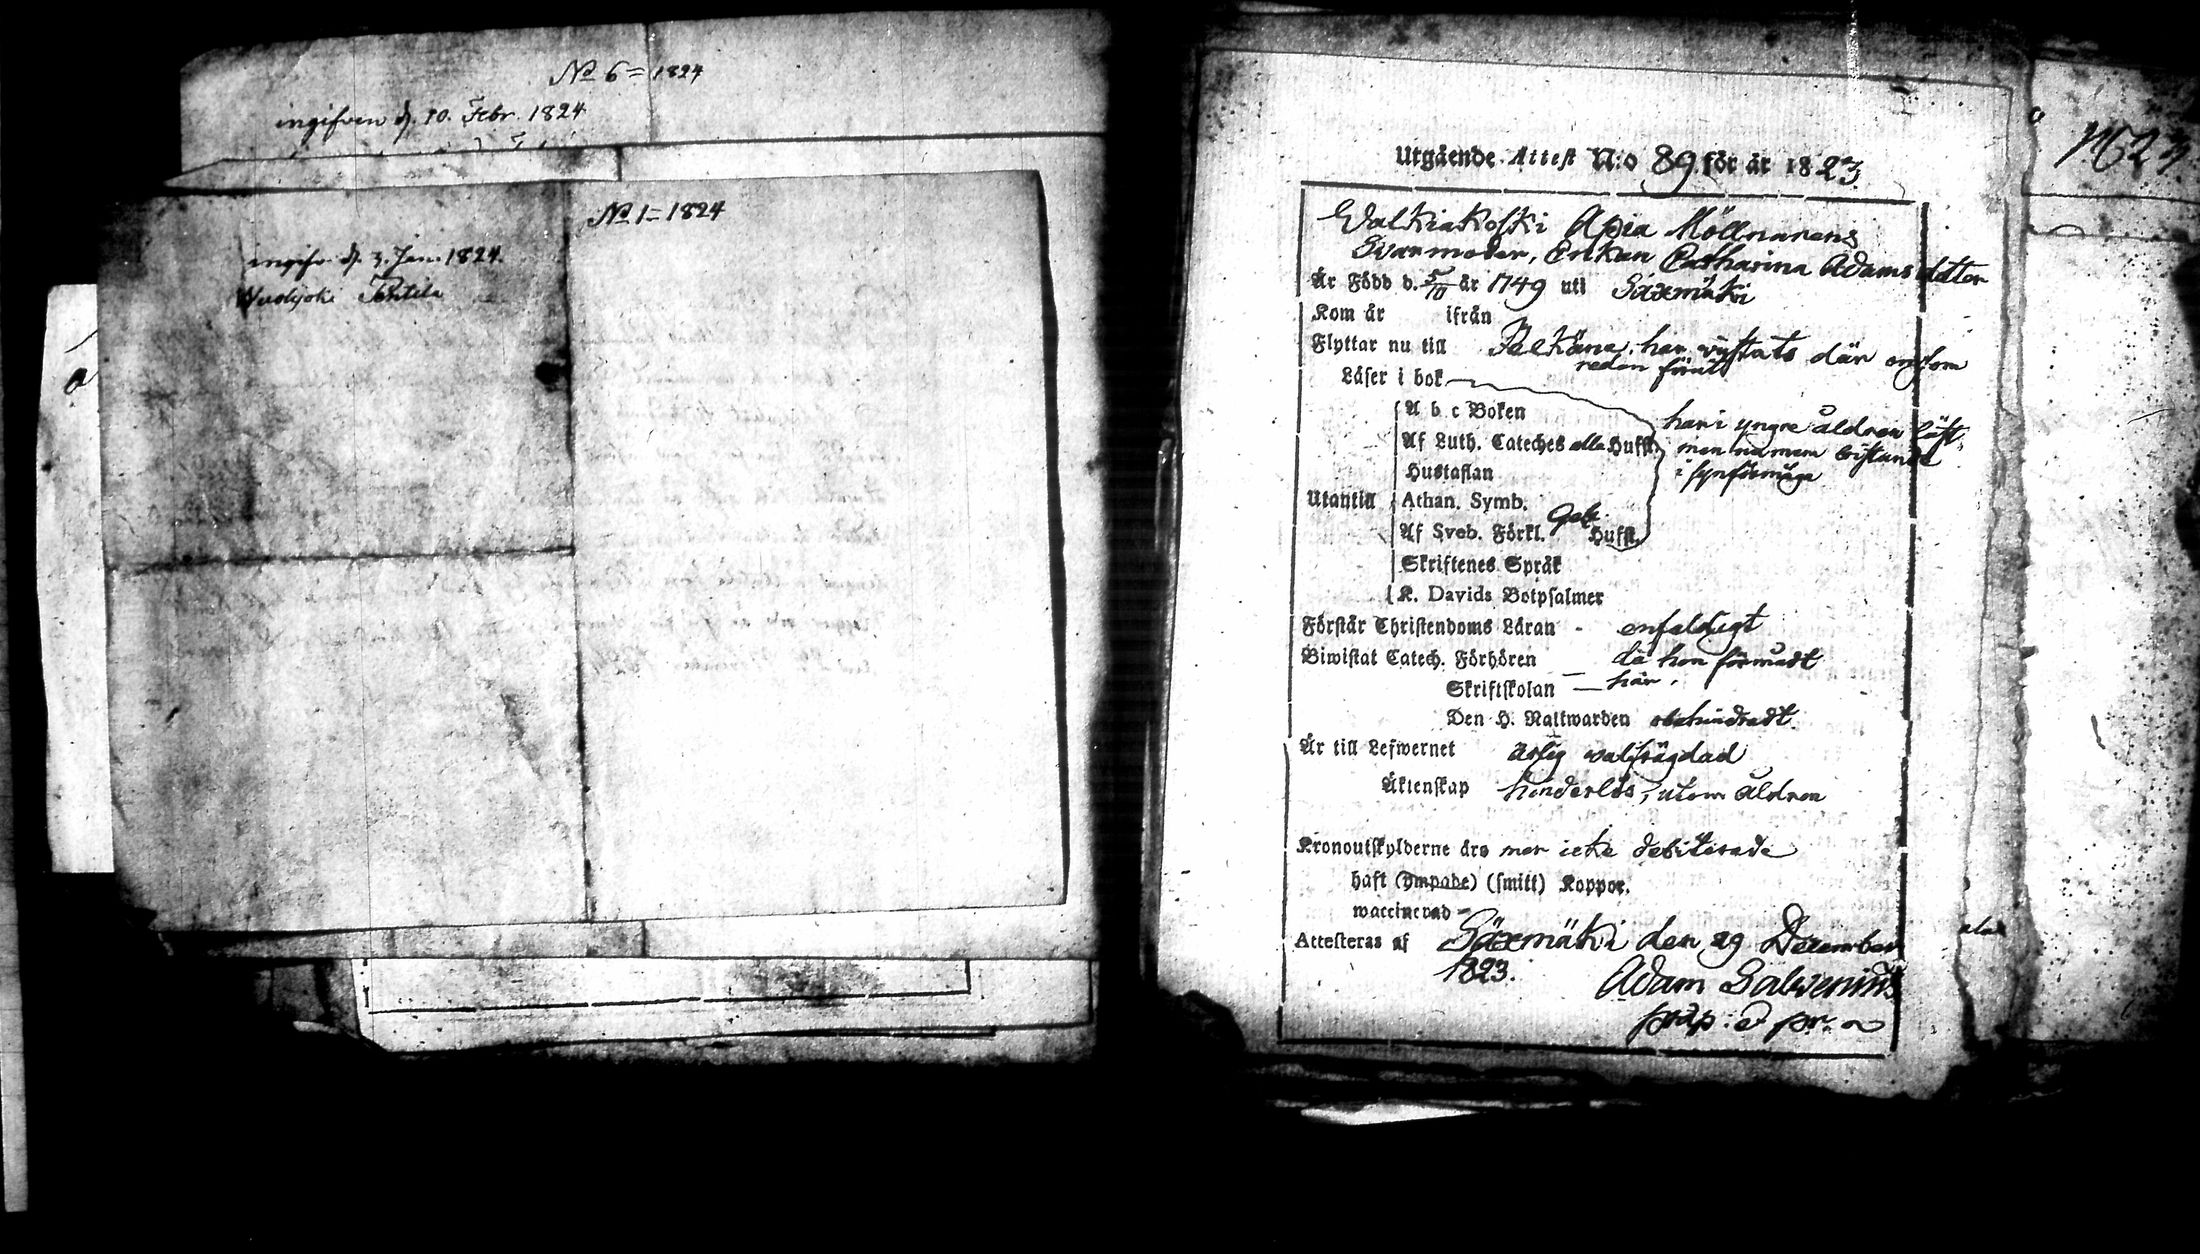 No 6 = 1824
ingifven d. 10. Febr. 1824
No 1 = 1824
ingifv. d. 3. Jan. 1824.
Utgående Attest N:o 89 för år 1823.
Walkiakoski Apia Möllnarens
Svärmoder, Enkan Catharina Adamsdotter
Är Född d. 5/10 år 1749 uti Säxmäki
Kom år ifrån
Flyttar nu till Pelkäne, har vistats där
redan förut
Läser i bok
har i yngre åldren läst,
A b c Boken
Af Luth. Cateches alla Hufst.
men
i synförmåga
Hustaflan
Utantill Athan. Symb.
Af Sveb. Förkl. Hufst.
Skriftenes Språk
K. Davids Botpsalmer
Förstår Christendoms Läran - enfaldigt
Biwistat Catech. Förhören — då hon förmådt
Skriftskolan — här.
Den H. Nattwarden obehindradt.
Är till Lefwernet ärlig välfrägdad
Äktenskap hinderlös, utom åldren
Kronoutskylderne äro mer icke debiterade
haft (ympade) (smitt) Koppor.
waccinerad -
Attesteras af Säxmäki den 29 December
1823.
Adam Salvenius
präp: & p